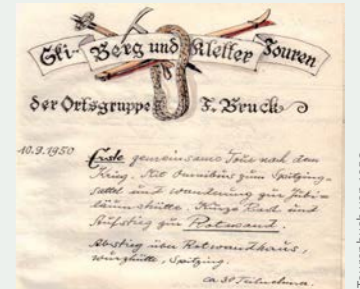 Ski- Berg und Kletter Touren
der Ortsgruppe F. Bruck
10.9.1950
Erste gemeinsame Tour nach dem
Krieg. Mit Omnibus zum Spitzing-
sattel und Wanderung zur Jubi-
läumshütte. Kurze Rast und
Aufstieg zur Rotwand.
Abstieg über Rotwandhaus,
Wurzhütte, Spitzing.
ca 38 Teilnehmer.